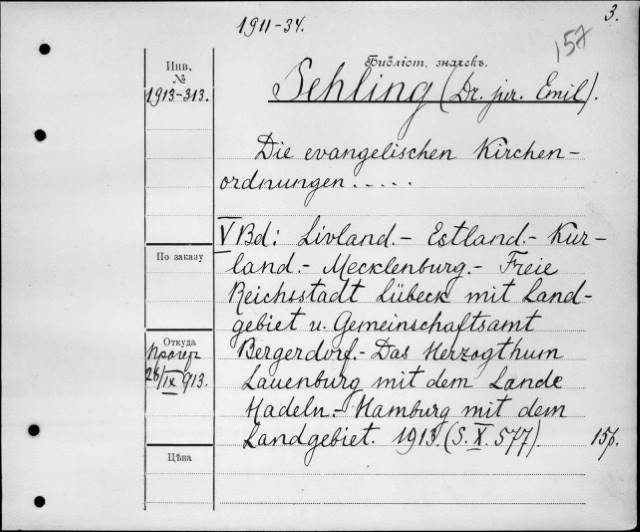 1911-34.
3.
157
Инв.
№
1913-313.
Библіот. значекъ.
Sehling (Dr. jur. Emil).
Die evangelischen Kirchen-
ordnungen.....
V Bd: Livland.- Estland.- Kur-
land.- Mecklenburg.- Freie
По заказу
Reichsstadt Lübeck mit Land-
gebiet u. Gemeinschaftsamt
Откуда
Bergerdorf.- Das Herzogthum
28/IX 913.
Lauenburg mit dem Lande
Hadeln.- Hamburg mit dem
Landgebiet. 1913. (S. X. 577).
Цѣна